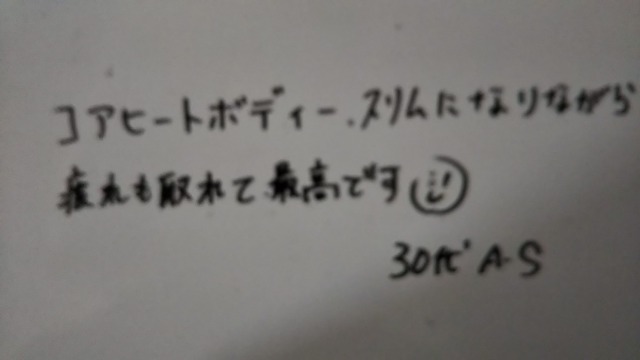 コアヒートボディー、スリムになりながら
疲れも取れて最高です
30代 A.S